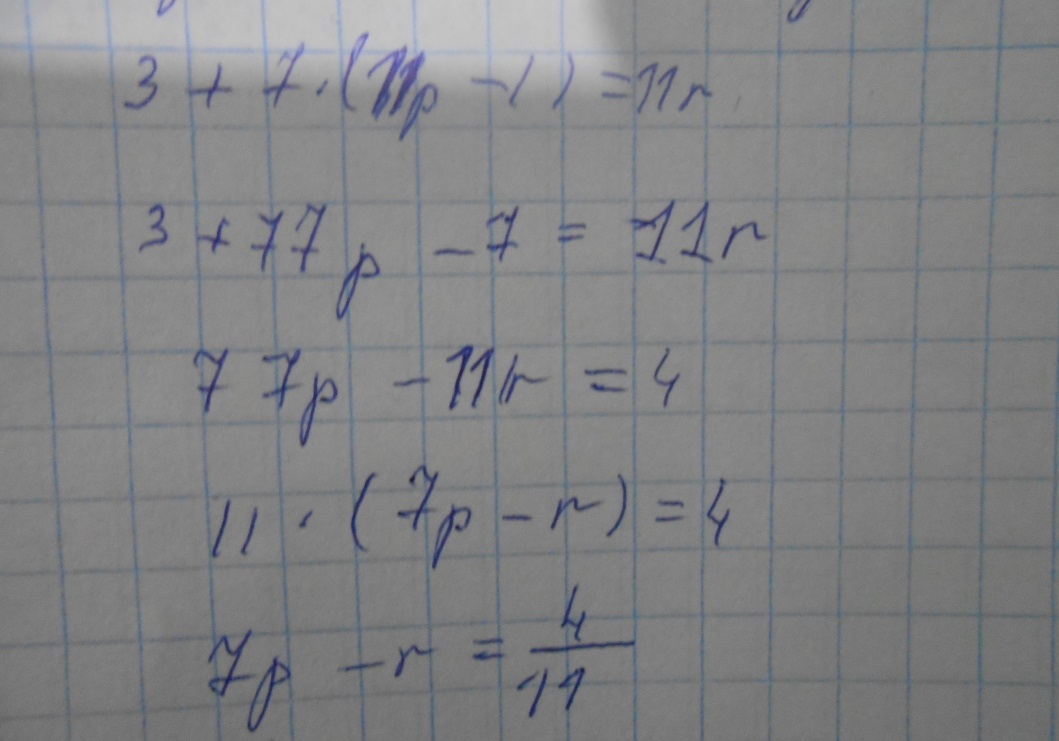 3 + 7·(11p - 1) = 11r
3 + 77p - 7 = 11r
77p - 11r = 4
11·(7p - r) = 4
7p - r = 4/11